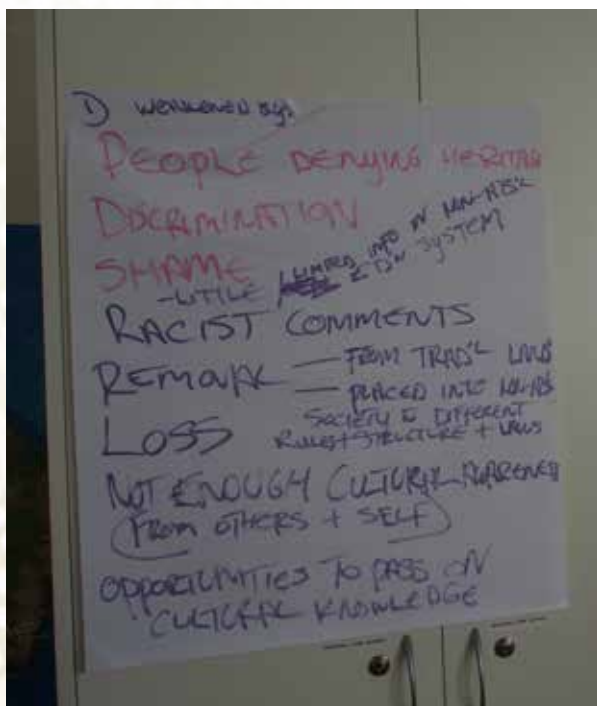 1) WEAKENED By:
PEOPLE DENYING HERITAG
DISCRIMINATION
SHAME
- LITTLE / LIMITED INFO IN
EDN SYSTEM
RACIST COMMENTS
REMOVAL — FROM TRAD'L LAND
— PLACED INTO
SOCIETY & DIFFERENT
RULES + STRUCTURE + LAWS
LOSS
NOT ENOUGH CULTURAL AWARENES
(FROM OTHERS + SELF)
OPPORTUNITIES TO PASS ON
CULTURAL KNOWLEDGE